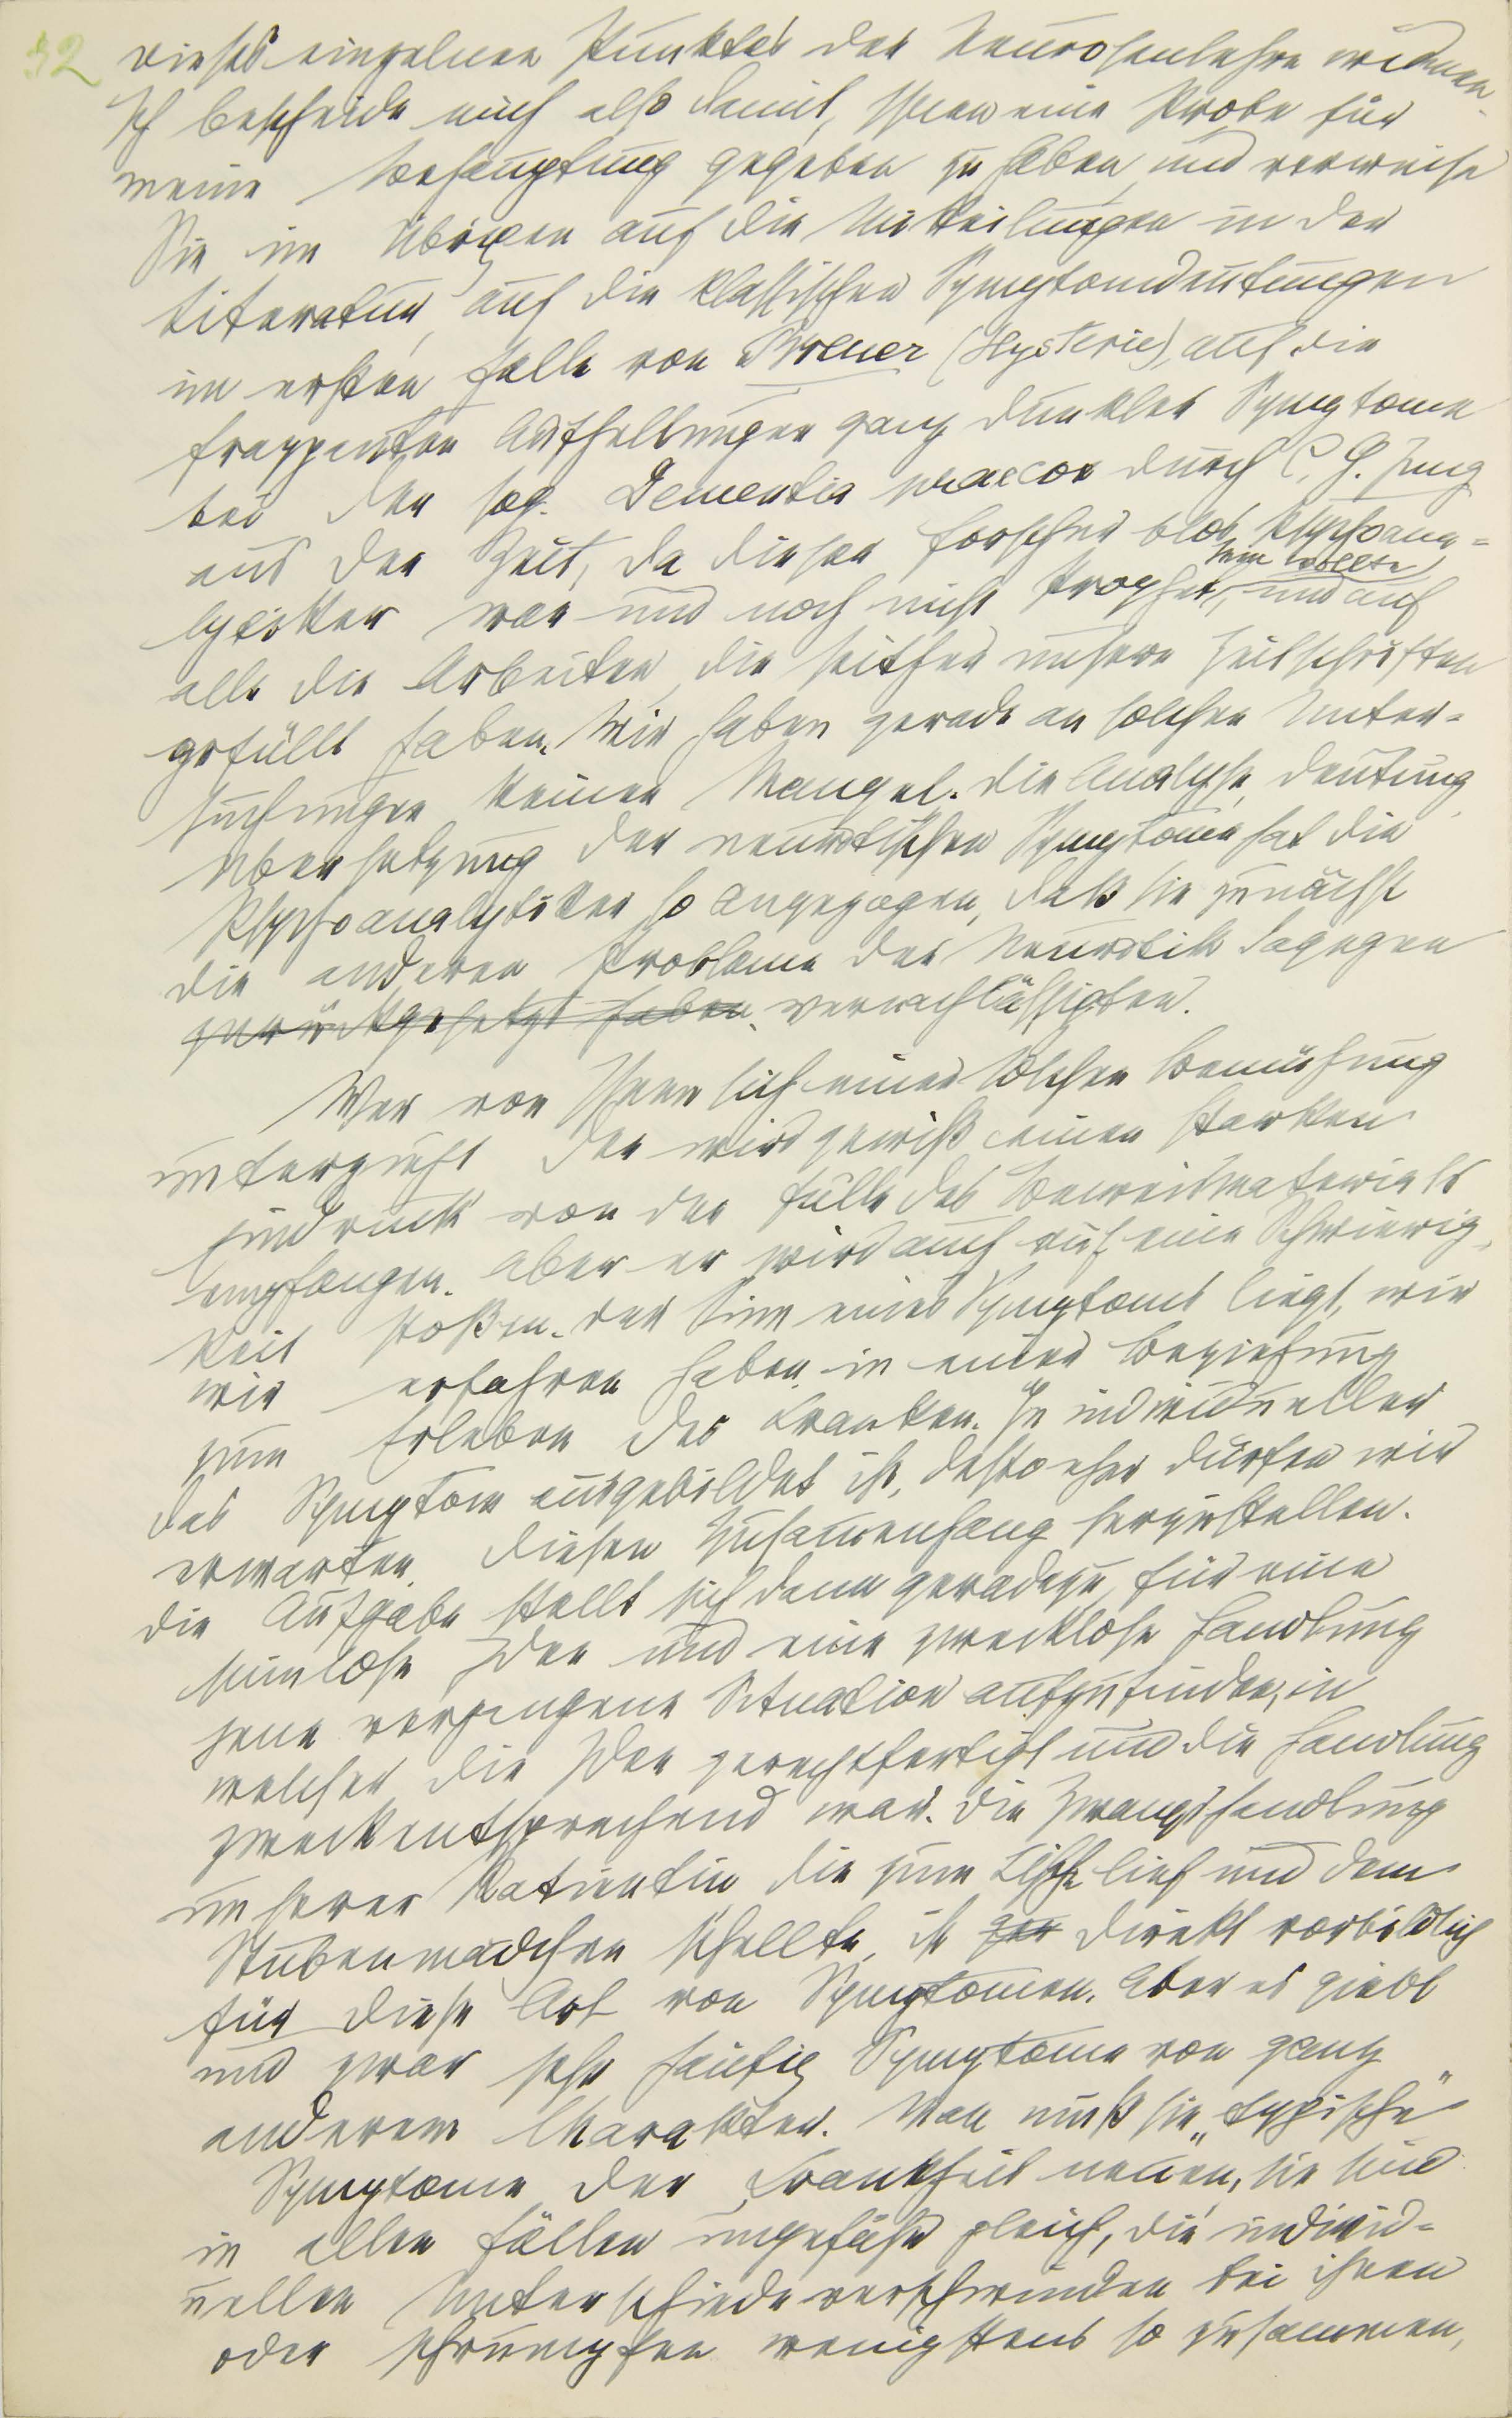 32
dieses einzelnen Punktes der Neurosenlehre widmen.
Ich bescheide mich also damit, Ihnen eine Probe für
meine Behauptung gegeben zu haben und verweise
Sie im Übrigen auf die Mitteilungen in der
Literatur, auf die klassischen Symptomdeutungen
im ersten Falle von Breuer (Hysterie), auf die
frappanten Aufhellungen ganz dunkler Symptome
bei der sog. Dementia praecox durch C. G. Jung
aus der Zeit, da dieser Forscher blos Psychoana=
sein wollte,
lytiker war und noch nicht Prophet, und auf
alle die Arbeiten, die seither unsere Zeitschriften
gefüllt haben. Wir haben gerade an solchen Unter=
suchungen keinen Mangel. Die Analyse, Deutung,
Übersetzung der neurotischen Symptome hat die
Psychoanalytiker so angezogen, daß sie zunächst
die anderen Probleme der Neurotik dagegen
zurückgesetzt haben. vernachlässigten.
Wer von Ihnen sich einer solchen Bemühung
unterzieht der wird gewiß einen starken
Eindruck von der Fülle des Beweismaterials
empfangen. Aber er wird auch auf eine Schwierig=
keit stoßen. Der Sinn eines Symptoms liegt, wie
wir erfahren haben, in einer Beziehung
zum Erleben des Kranken. Je individueller
das Symptom ausgebildet ist, desto eher dürfen wir
erwarten, diesen Zusammenhang herzustellen.
Die Aufgabe stellt sich dann geradezu, für eine
sinnlose Idee und eine zwecklose Handlung
jene vergangene Situation aufzufinden, in
welcher die Idee gerechtfertigt und die Handlung
zweckentsprechend war. Die Zwangshandlung
unserer Patientin die zum Tisch lief und dem
Stubenmädchen schellte, ist direkt vorbildlich
für diese Art von Symptomen. Aber es giebt
und zwar sehr häufig Symptome von ganz
anderem Charakter. Man muß sie „typische“
Symptome der Krankheit nennen, sie sind
in allen Fällen ungefähr gleich, die individ=
uellen Unterschiede verschwinden bei ihnen
oder schrumpfen wenigstens so zusammen,